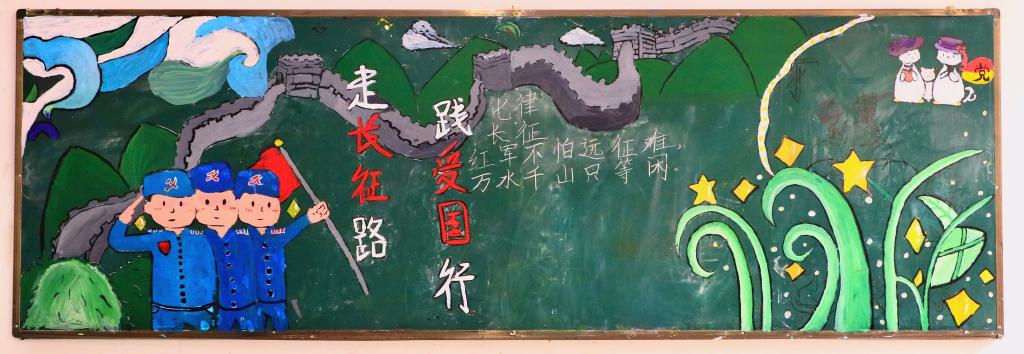 走长征路
践爱国行
七律
长征
红军不怕远征难，
万水千山只等闲。
党